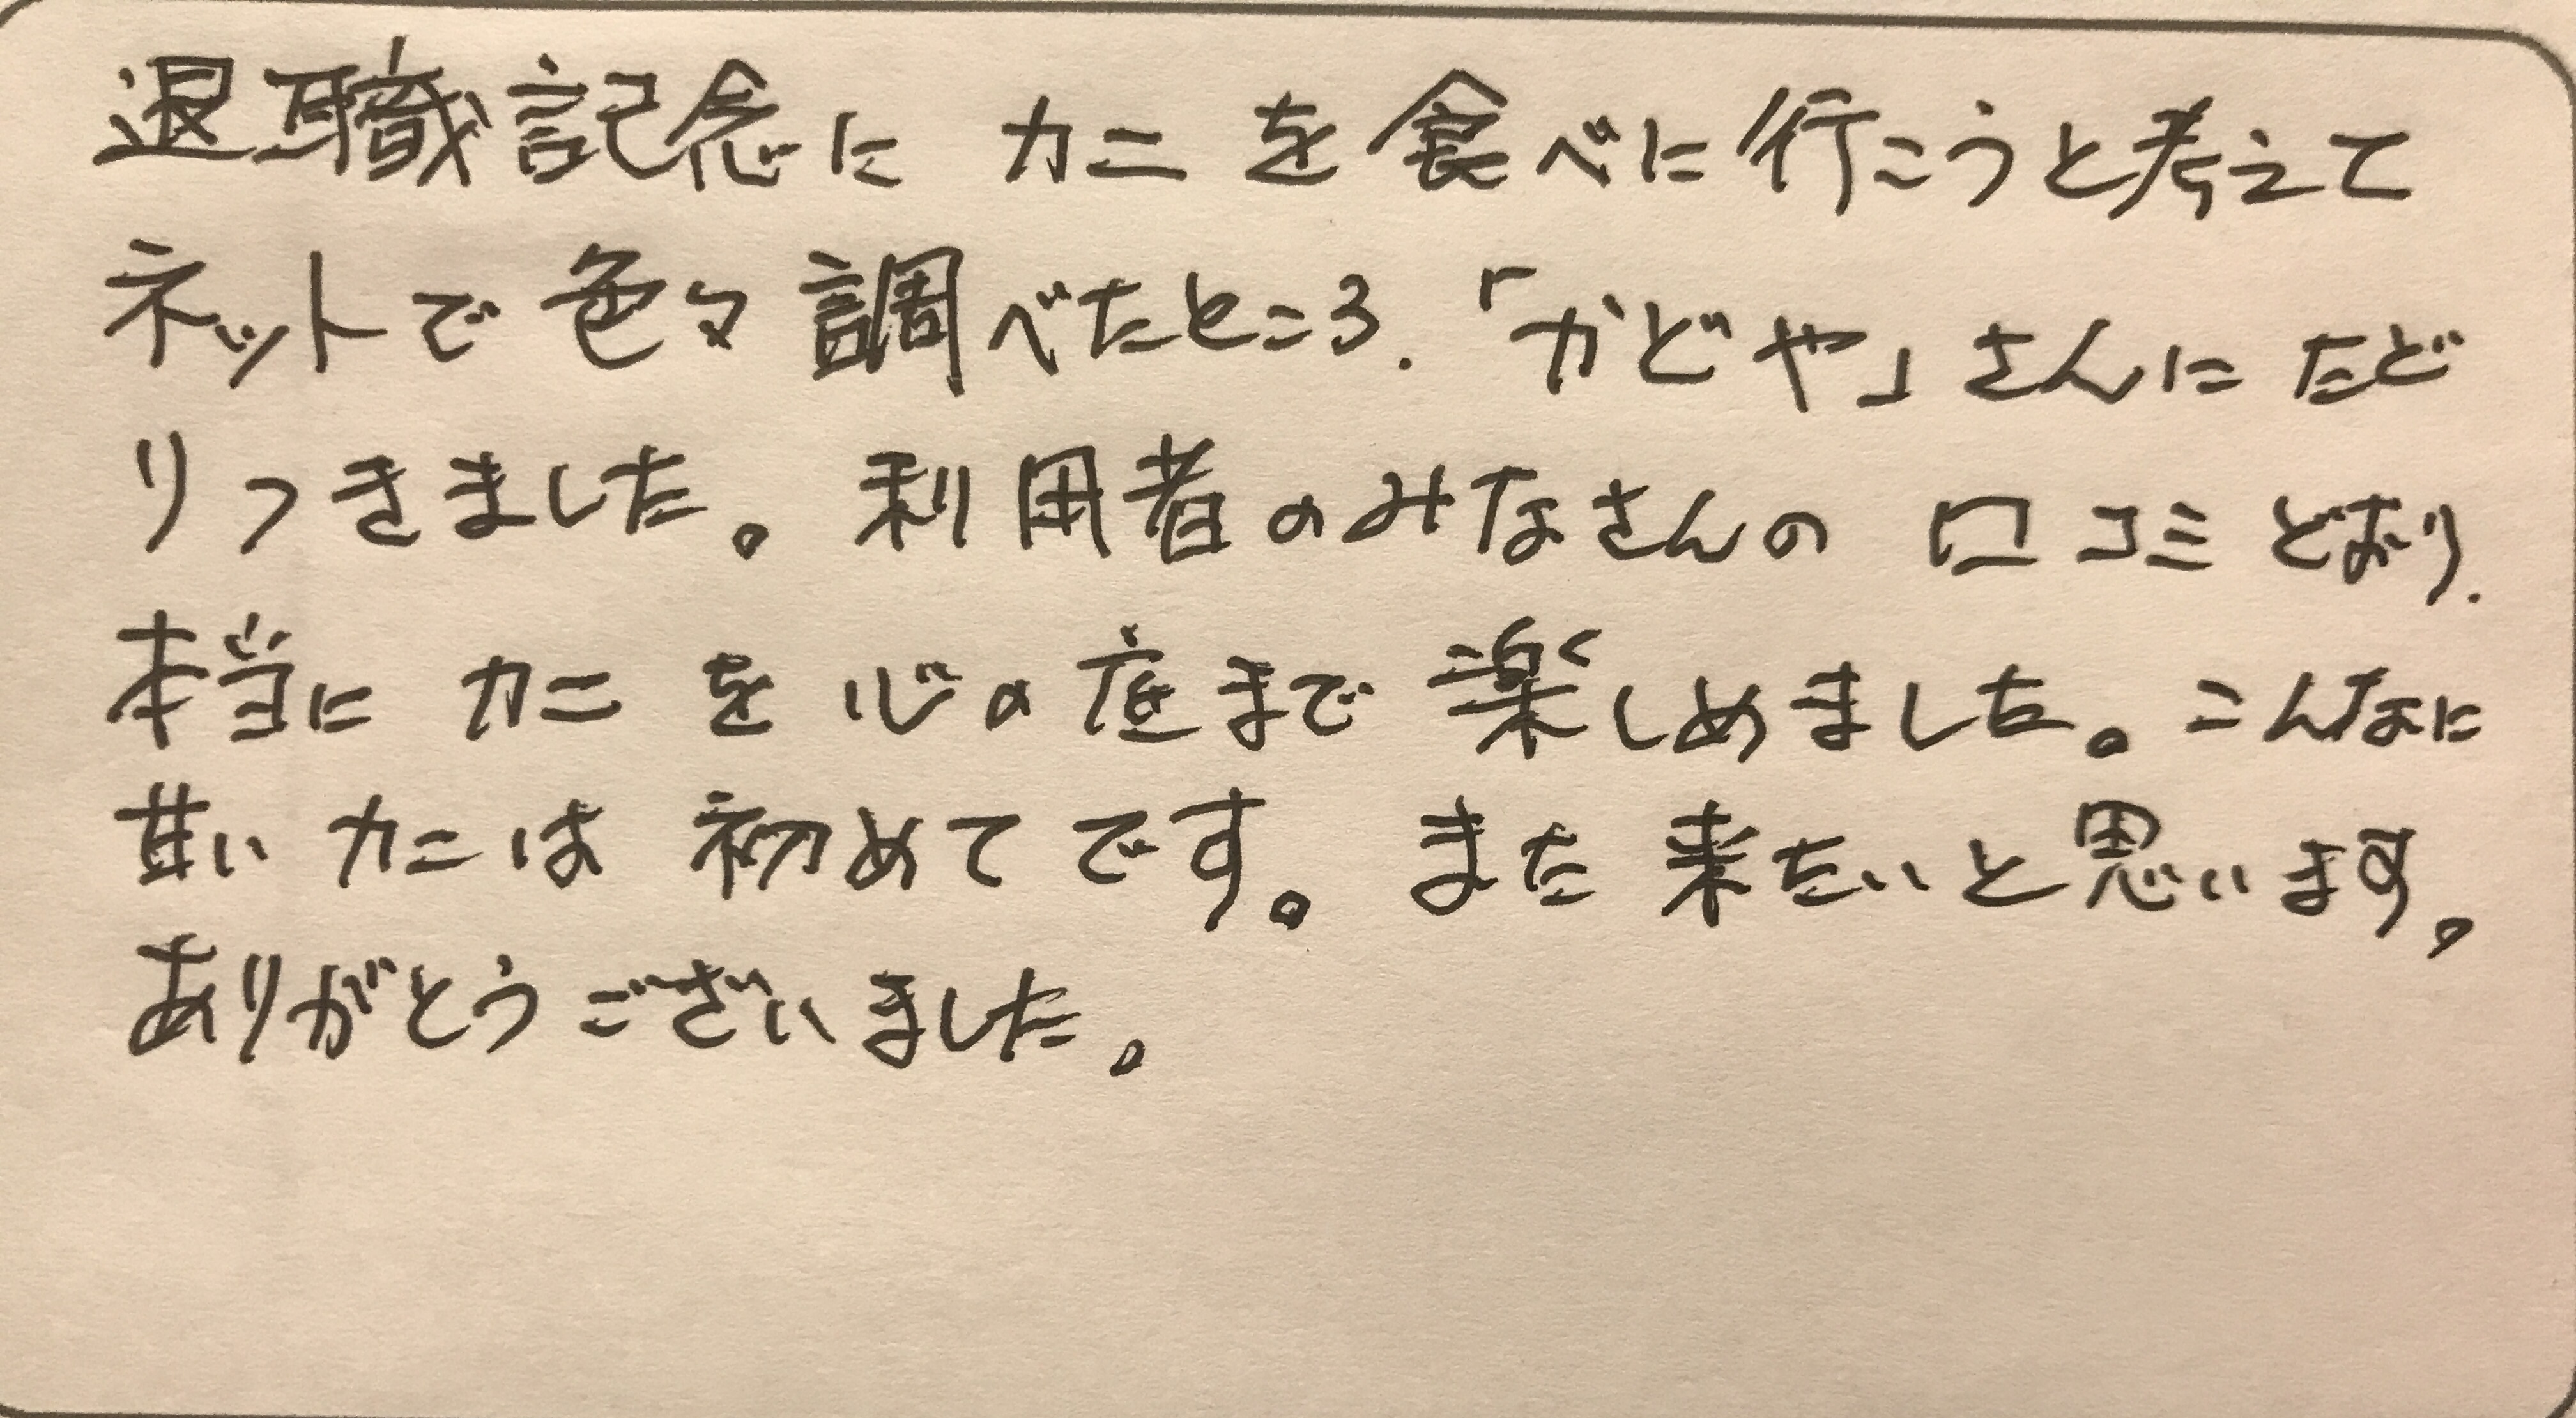 退職記念に カニ を食べに行こうと考えて
ネットで色々調べたところ、「かどや」さんにたど
りつきました。利用者のみなさんの 口コミどおり、
本当に カニ を心の底まで楽しめました。こんなに
甘いカニは 初めてです。また来たいと思います。
ありがとうございました。